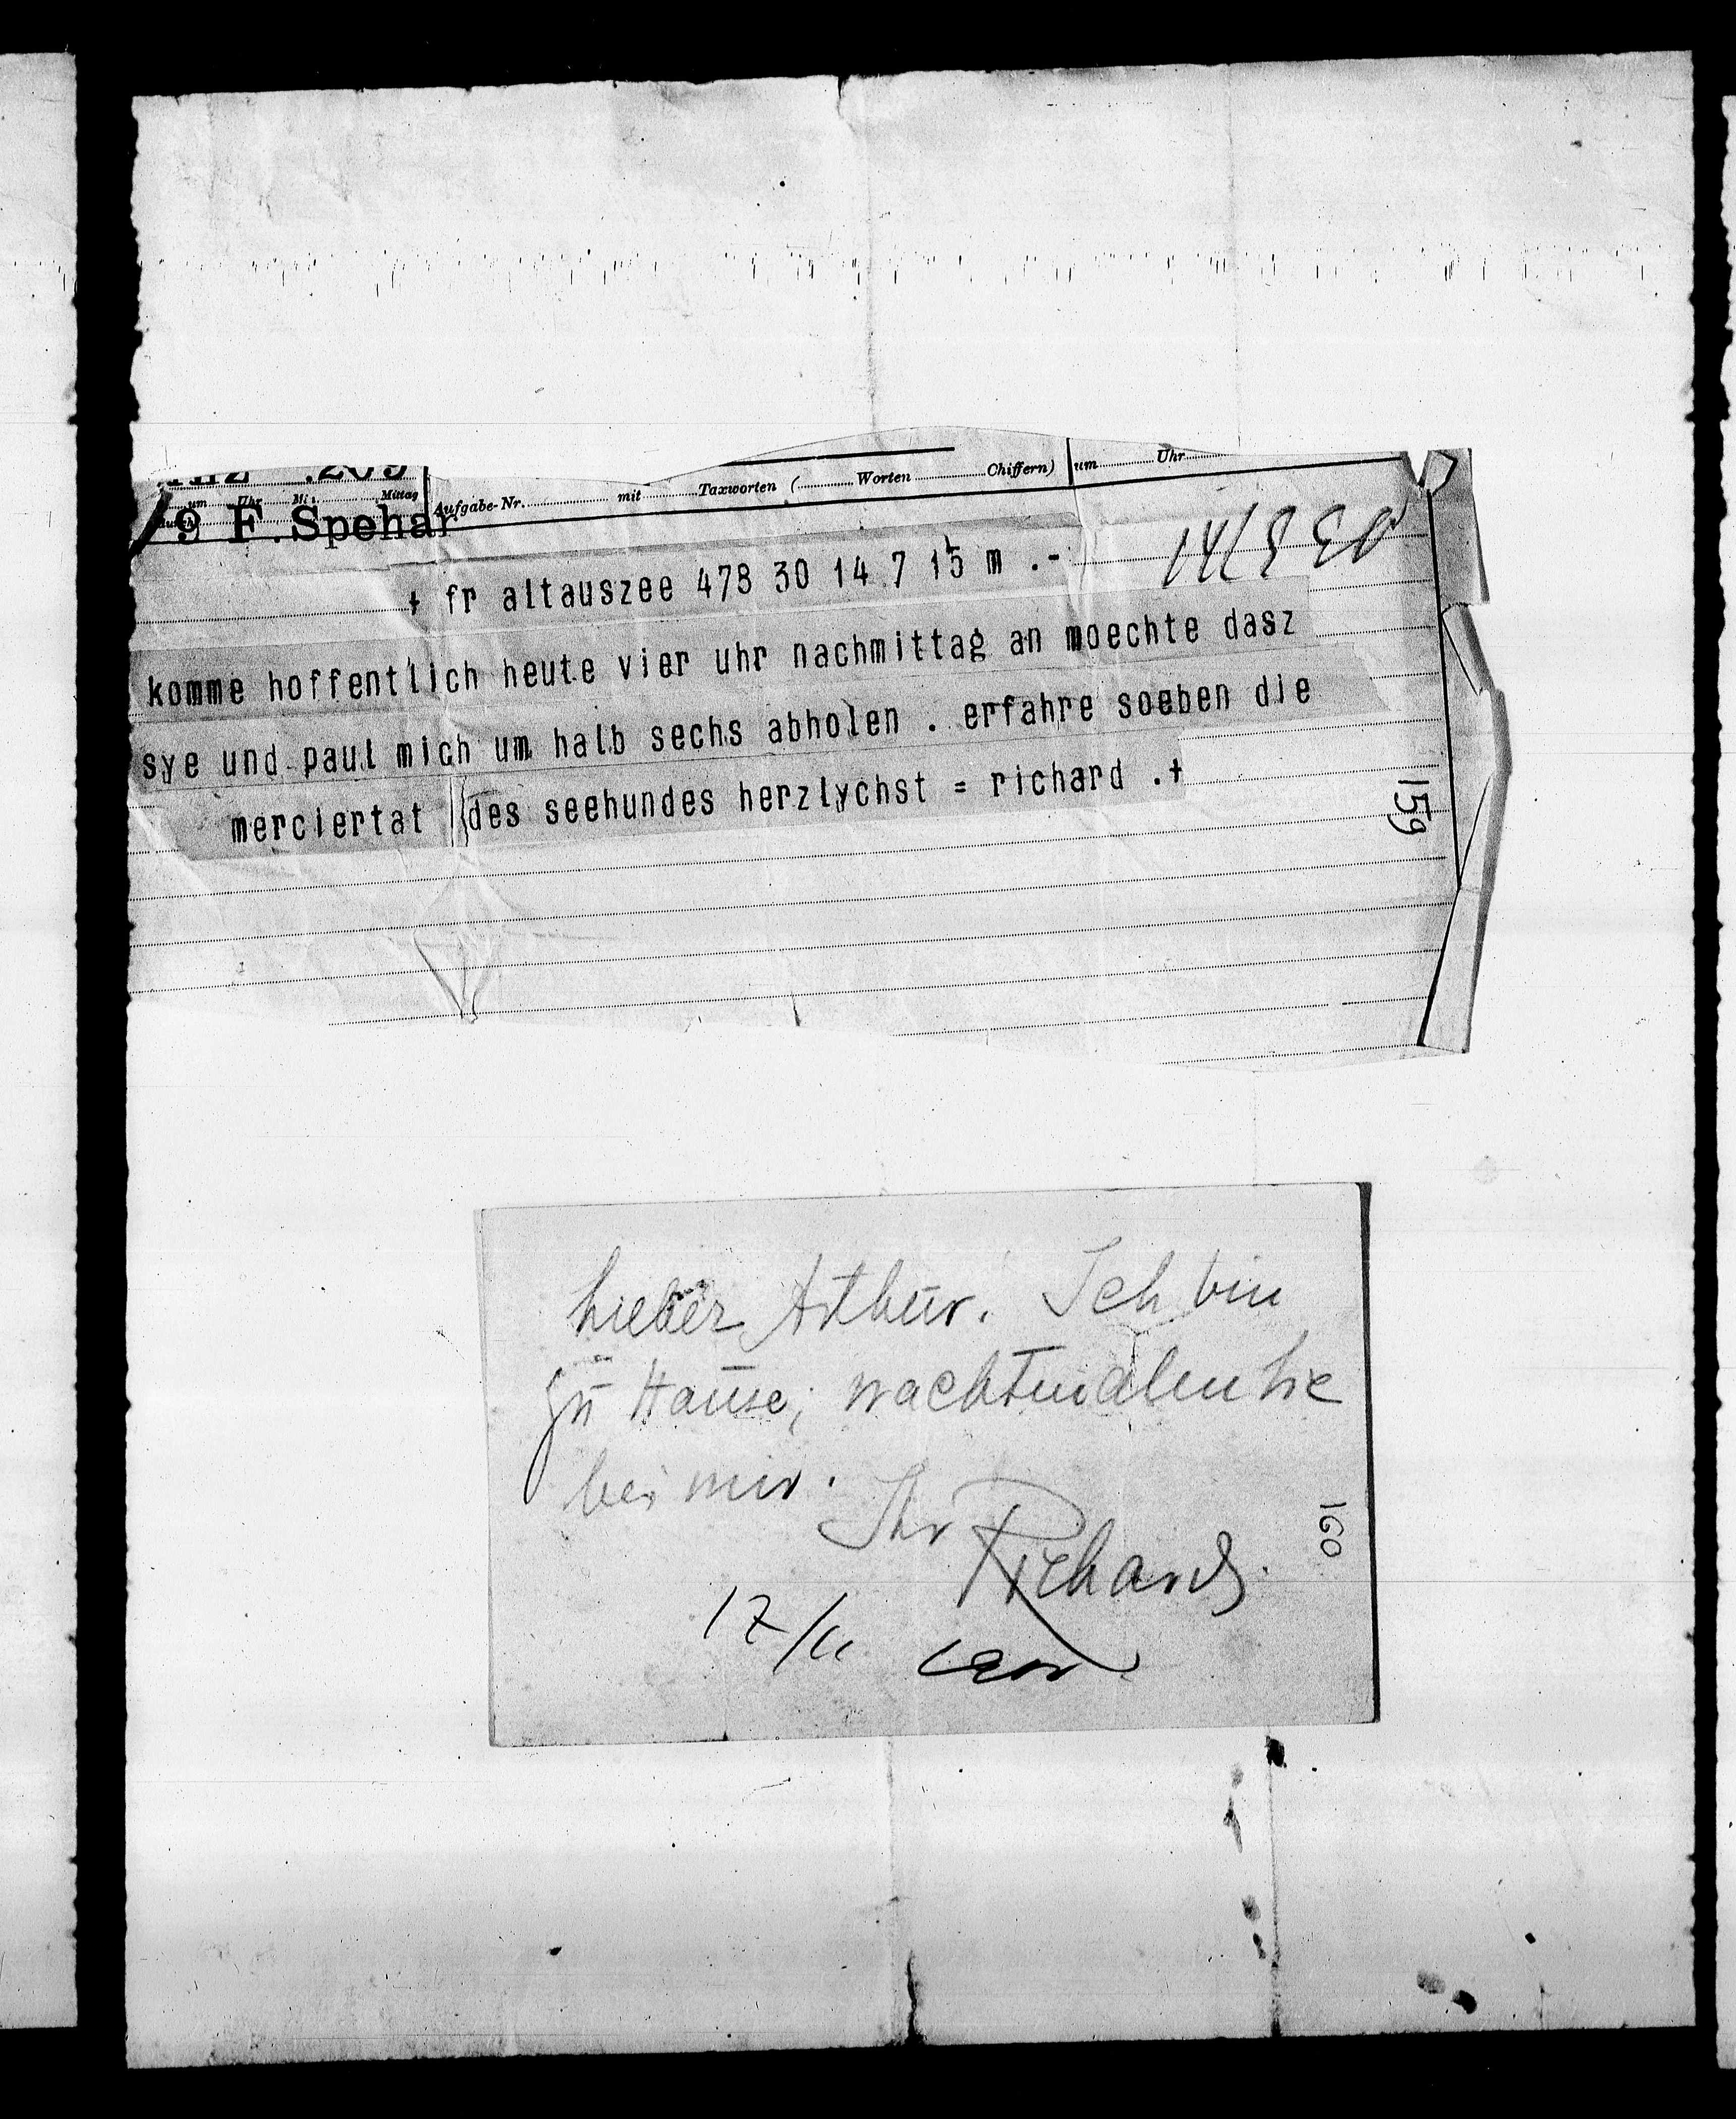 .205
um Uhr Mi. Mittag
9 F. Spehar
Aufgabe-Nr. mit Taxworten ( Worten Chiffern) um Uhr
+ fr altauszee 478 30 14 7 15 m .-
komme hoffentlich heute vier uhr nachmittag an moechte dasz
sye und paul mich um halb sechs abholen . erfahre soeben die
merciertat des seehundes herzlychst = richard .+
159
Lieber Arthur! Ich bin
zu Hause; nachtmalen Sie
bei mir.
Ihr
Richard.
160
17/11